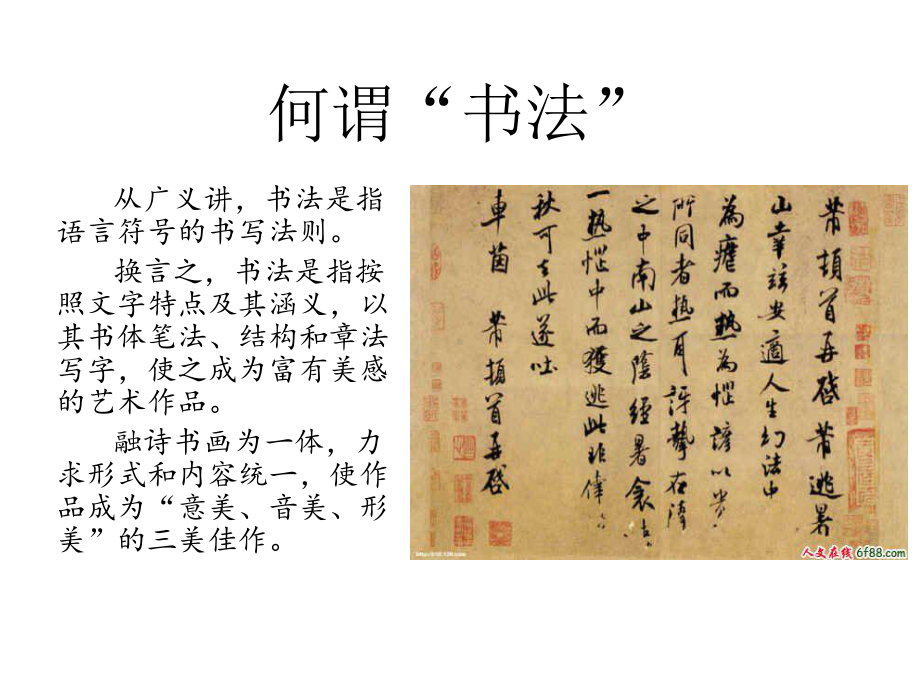 何谓“书法”
从广义讲，书法是指
语言符号的书写法则。
换言之，书法是指按
照文字特点及其涵义，以
其书体笔法、结构和章法
写字，使之成为富有美感
的艺术作品。
融诗书画为一体，力
求形式和内容统一，使作
品成为“意美、音美、形
美”的三美佳作。
芾頓首再啓芾逃暑
山幸兹安適人生幻法中
為瘧而熱為惱諺以貴
所同者熱耳訝摯在清
之中南山之陰經暑衾
一熱惱中而獲逃此非偉
秋可去此遂吐
車茵 芾頓首再啓
人文在线 6f88.com